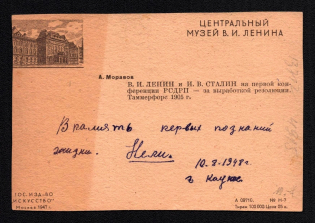 ЦЕНТРАЛЬНЫЙ
МУЗЕЙ В. И. ЛЕНИНА
А. Моравов
В. И. ЛЕНИН и И. В. СТАЛИН на первой кон-
ференции РСДРП — за выработкой резолюции.
Таммерфорс 1905 г.
В память первых познаний
жизни. Нели.
10.8.1948 г.
г. Каунас
ГОС. ИЗД-ВО
ИСКУССТВО
Москва 1947 г.
Тираж 100 000 Цена